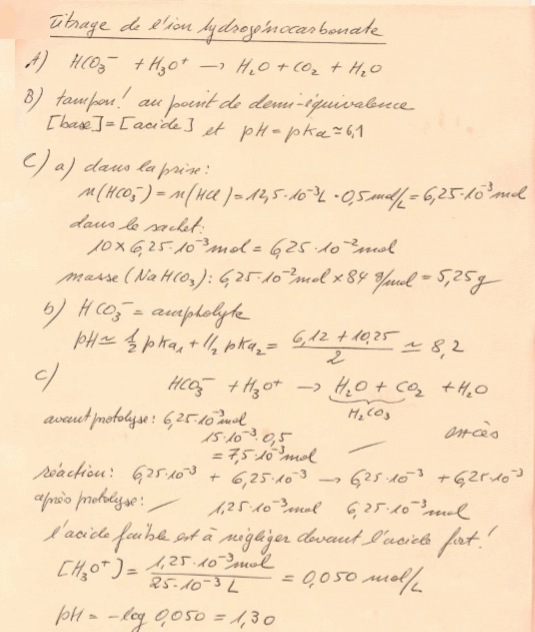 Titrage de l'ion hydrogénocarbonate
A) HCO₃⁻ + H₃O⁺ → H₂O + CO₂ + H₂O
B) tampon! au point de demi-équivalence
[base]=[acide] et pH = pKa ≃ 6,1
C) a) dans la prise:
n(HCO₃⁻) = n(HCl) = 12,5·10⁻³L · 0,5 mol/L = 6,25·10⁻³ mol
dans le sachet:
10 × 6,25·10⁻³ mol = 6,25·10⁻² mol
masse (NaHCO₃): 6,25·10⁻² mol × 84 g/mol = 5,25 g
b) HCO₃⁻ = ampholyte
pH ≃ 1/2 pKa₁ + 1/2 pKa₂ = (6,12 + 10,25)/2 ≃ 8,2
c)
HCO₃⁻ + H₃O⁺ → H₂O + CO₂ + H₂O
H₂CO₃
avant protolyse: 6,25·10⁻³ mol
15·10⁻³·0,5 — excès
= 7,5·10⁻³ mol
réaction: 6,25·10⁻³ + 6,25·10⁻³ → 6,25·10⁻³ + 6,25·10⁻³
après protolyse: — 1,25·10⁻³ mol 6,25·10⁻³ mol
l'acide faible est à négliger devant l'acide fort!
[H₃O⁺] = 1,25·10⁻³ mol / 25·10⁻³ L = 0,050 mol/L
pH = -log 0,050 = 1,30